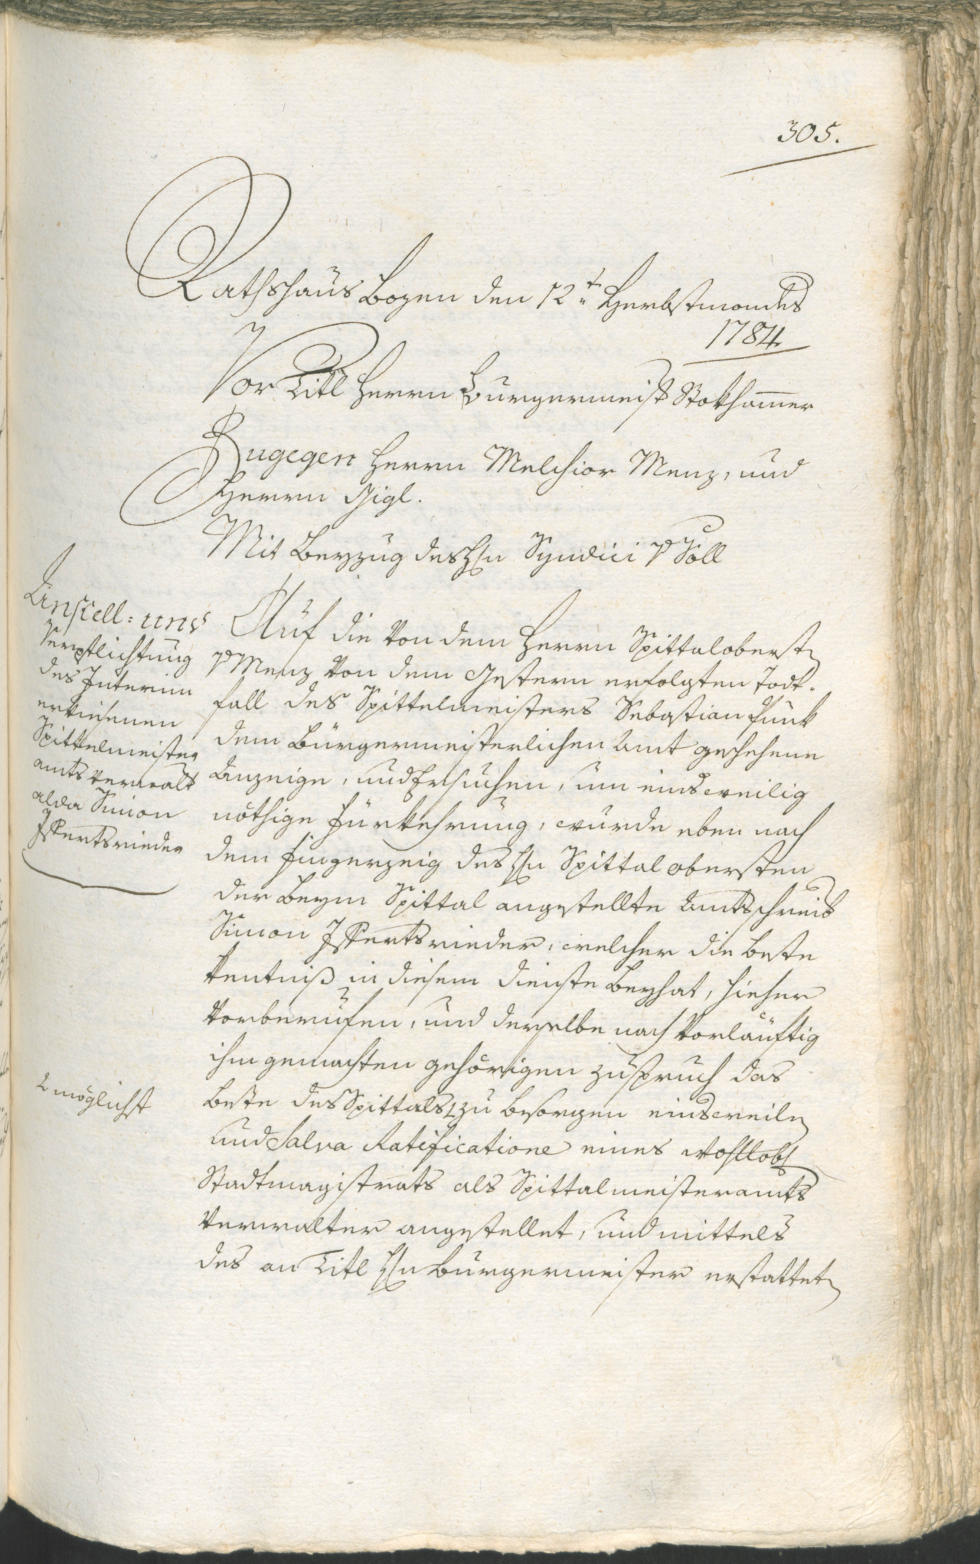 305.
Rathshaus Bozen den 12t Herbstmondes
1784
Vor Titl Herrn Burgermeist Stokhammer
Zugegen Herrn Melchior Menz, und
Herrn Gigl.
Mit Beyzug des Hn Syndici v Söll
Anstell: und
Verpflichtung
des Interim
erkiesenen
Spittelmeister
amts Verwalt
alda Simon
Ißertsrieder
Auf die von dem Herrn Spittaloberst
v Menz von dem gestern erfolgten Todt-
fall des Spittelmeisters Sebastian Funk
dem Bürgermeisterlichen Amt geschehene
Anzeige, und Ersuchen, um eindsweilig
nöthige Fürkehrung, wurde eben nach
dem Fingerzeig des Hn Spittalobersten
der beym Spittal angestellte Amtsschreib
Simon Ißertsrieder, welcher die beste
Kentniß in diesem Dienste beyhat, hieher
vorberufen, und derselbe nach vorläuftig
ihm gemachten gehörigen Zuspruch das
Beste des Spittals zu besorgen eindsweiln
möglichst
und Salva Ratificatione eines Wohllobl
Stadtmagistrats als Spittalmeisteramts
Verwalter angestellet, und mittels
des an Titl Hn Burgermeister erstattet